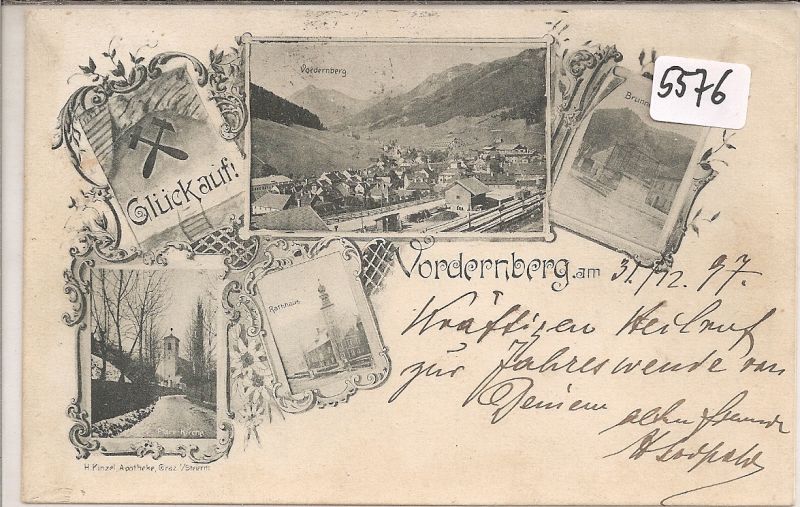 5576
Vordernberg
Glück auf!
Rathhaus
Pfarr-Kirche
H. Kinzel, Apotheke, Graz
Vordernberg, am 31./12. 97.
Kräftigen Heilruf
zur Jahreswende von
Deinem alten Freunde